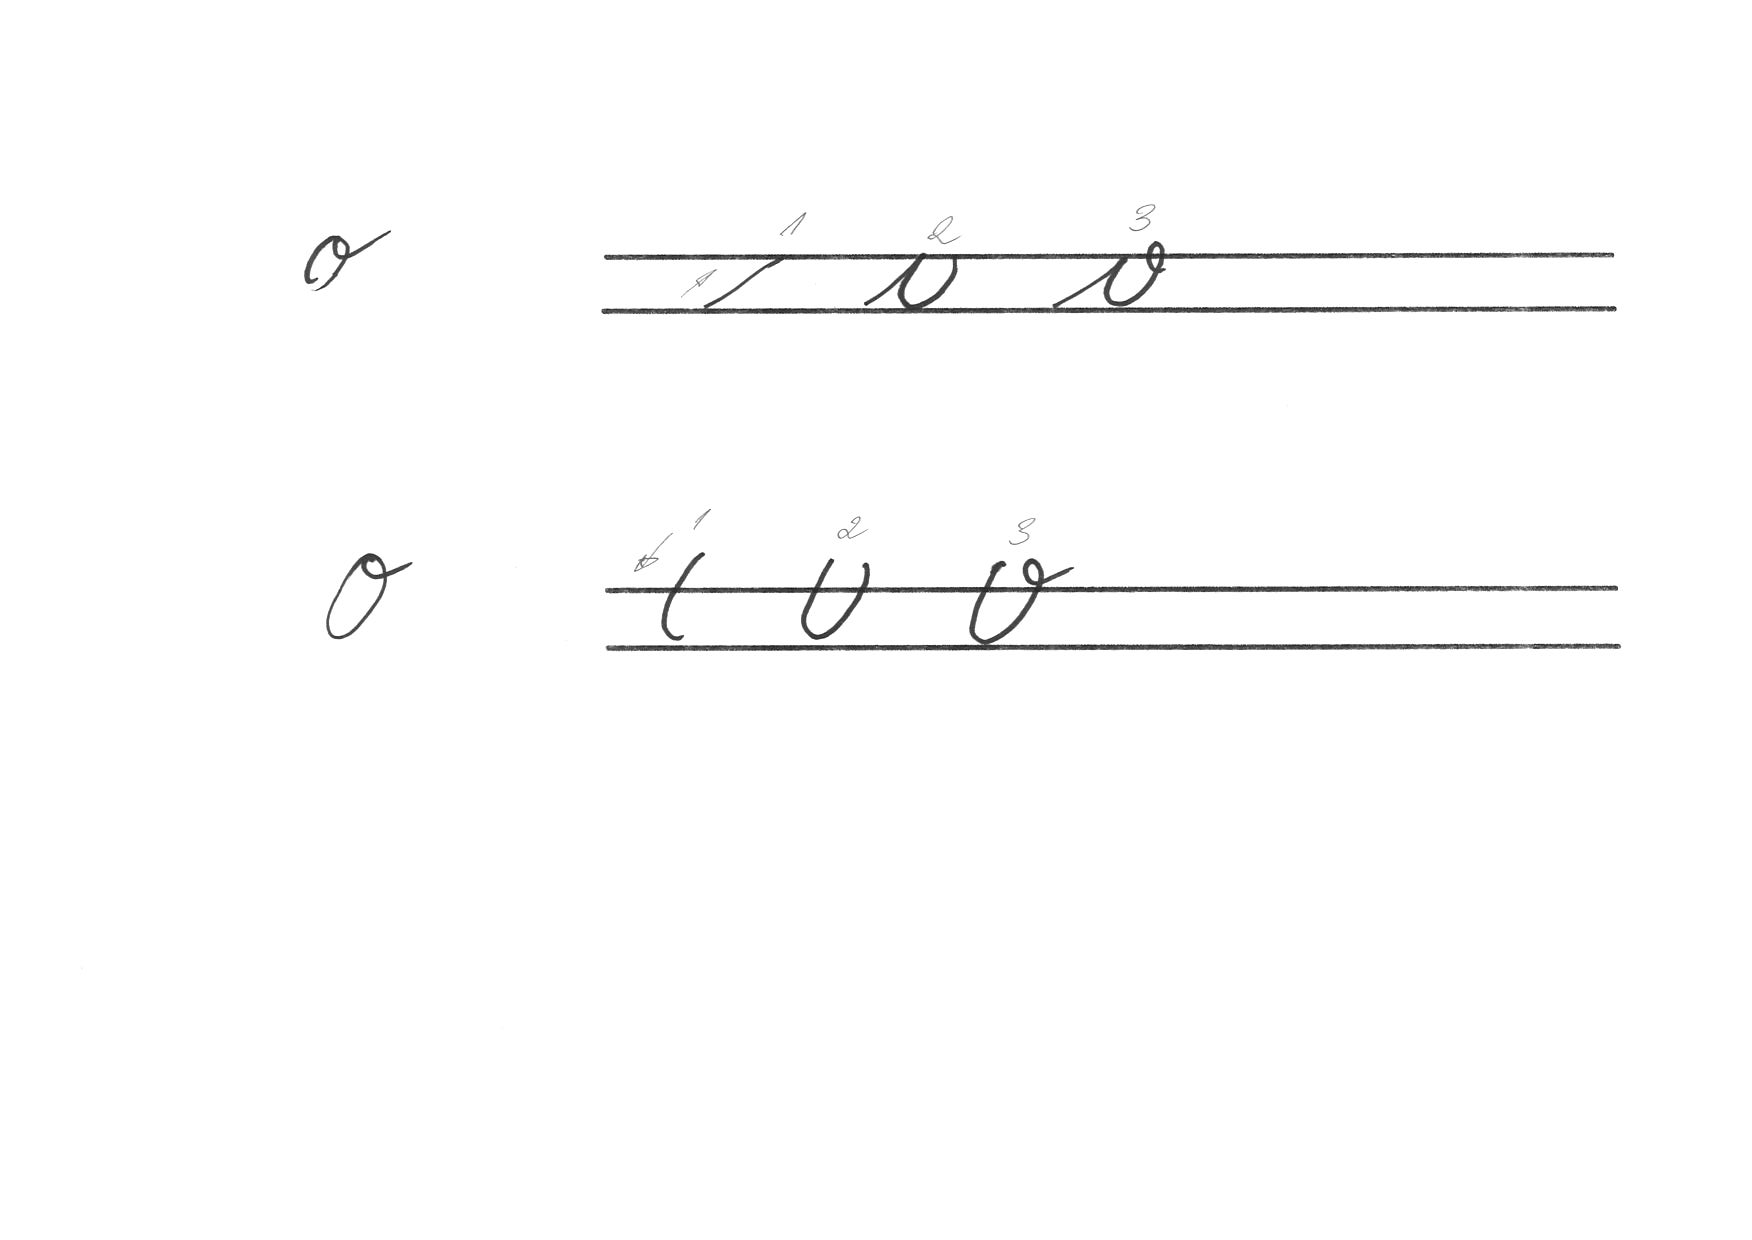 o 1 2 3
O 1 2 3